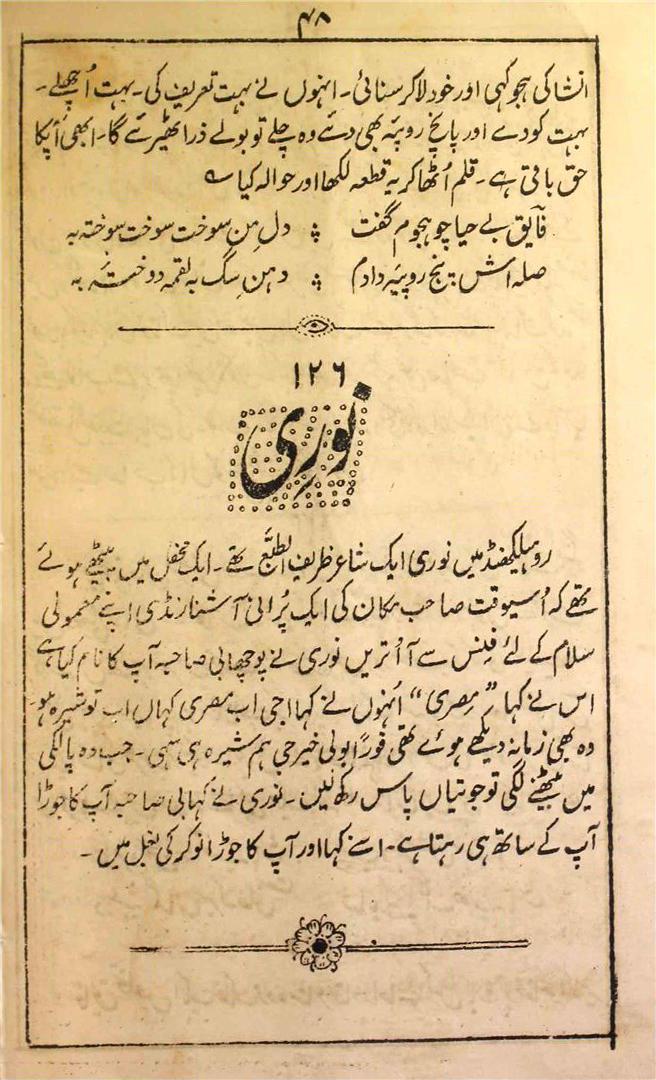 ۴۸
انشا کی ہجو کہی اور خود لاکر سنائی۔ انہوں نے بہت تعریف کی۔ بہت اُچھلے۔
بہت کودے اور پانچ روپئہ بھی دئے وہ چلے تو بولے ذرا ٹھیرئے گا۔ ابھی آپکا
حق باقی ہے۔ قلم اُٹھا کر یہ قطعہ لکھا اور حوالہ کیا ؎
فایق بے حیا چو ہجوم گفت ؞ دل من سوخت سوخت سوختہ بہ
صلہ اش پنج روپیہ دادم ؞ دہن سگ بہ لقمہ دوختہ بہ
۱۲۶
نوری
روہیلکھنڈ میں نوری ایک شاعر ظریف الطبع تھے۔ ایک محفل میں بیٹھے ہوئے
تھے کہ اُسیوقت صاحب مکان کی ایک پُرانی آشنا رنڈی اپنے معمولی
سلام کے لئے فینس سے آ اُتریں نوری نے پوچھا بی صاحبہ آپ کا نام کیا ہے
اس نے کہا "مصری" اُنہوں نے کہا اجی اب مصری کہاں اب تو شیرہ ہو۔
وہ بھی زمانہ دیکھے ہوئے تھی فوراً بولی خیر جی ہم شیرہ ہی سہی۔ جب وہ پالکی
میں بیٹھنے لگی تو جوتیاں پاس رکھ لیں۔ نوری نے کہا بی صاحبہ آپ کا جوڑا
آپ کے ساتھ ہی رہتا ہے۔ اسنے کہا اور آپ کا جوڑا نوکر کی بغل میں۔